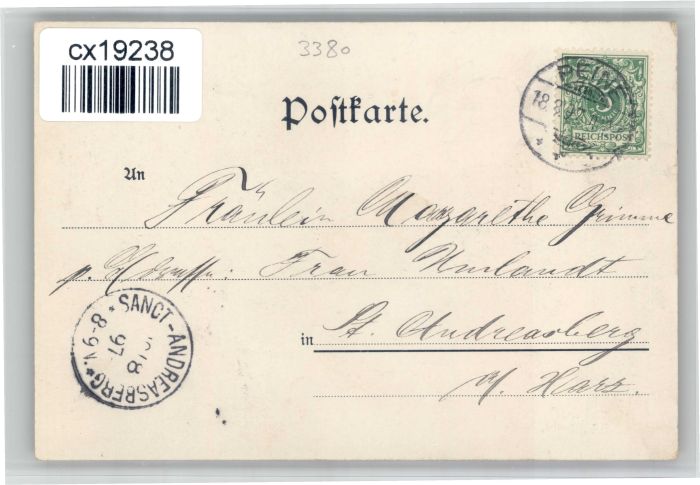 cx19238
3380
Postkarte.
PEINE
18.
REICHSPOST
An
Fräulein Margarethe Grimme
p. Adresse: Frau Umlandt
in St. Andreasberg
a/ Harz.
* SANCT-ANDREASBERG *
V. 8-9
8
97